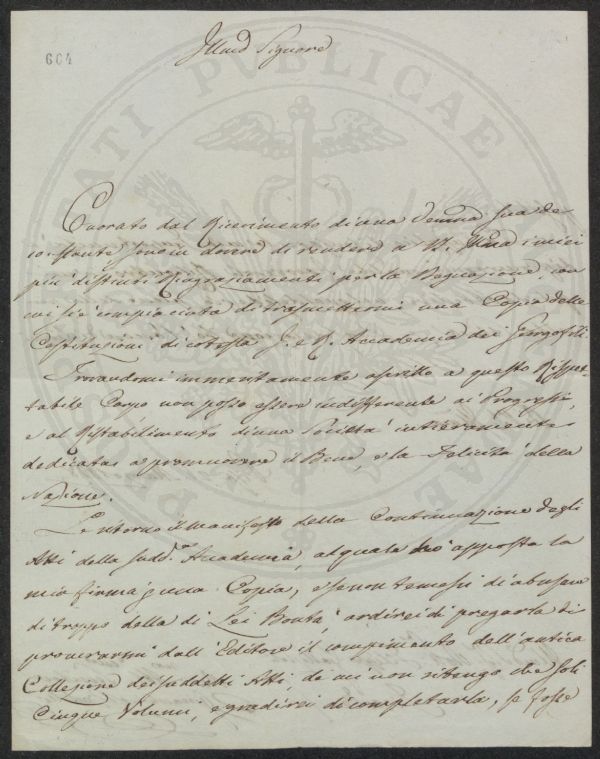 Illmo Signore
604
Onorato dal Ricevimento di una Venma sua de
10. stante sono in dovere di rendere a V. Illma i miei
più distinti Ringraziamenti per la Degnazione con
cui si è compiaciuta di trasmettermi una Copia delle
Costituzioni di cotesta I. e R. Accademia dei Georgofili.
Trovandomi immeritamente ascritto a questo Rispet-
tabile Corpo non posso essere indifferente ai Progressi,
e al Ristabilimento d'una Società intieramente
dedicata a promuovere il Bene, e la Felicità della
Nazione.
Le ritorno il manifesto della Continuazione degli
Atti della sudd.a Accademia, al quale ho apposta la
mia firma p una Copia, e se non temessi di abusare
di troppo della di Lei Bontà, ardirei di pregarla di
procurarmi dall'Editore il compimento dell'antica
Collezione dei suddetti Atti, de cui non ritengo che soli
Cinque Volumi, e gradirei di completarla, se fosse
PROSPERITATI PUBLICAE AUGENDAE